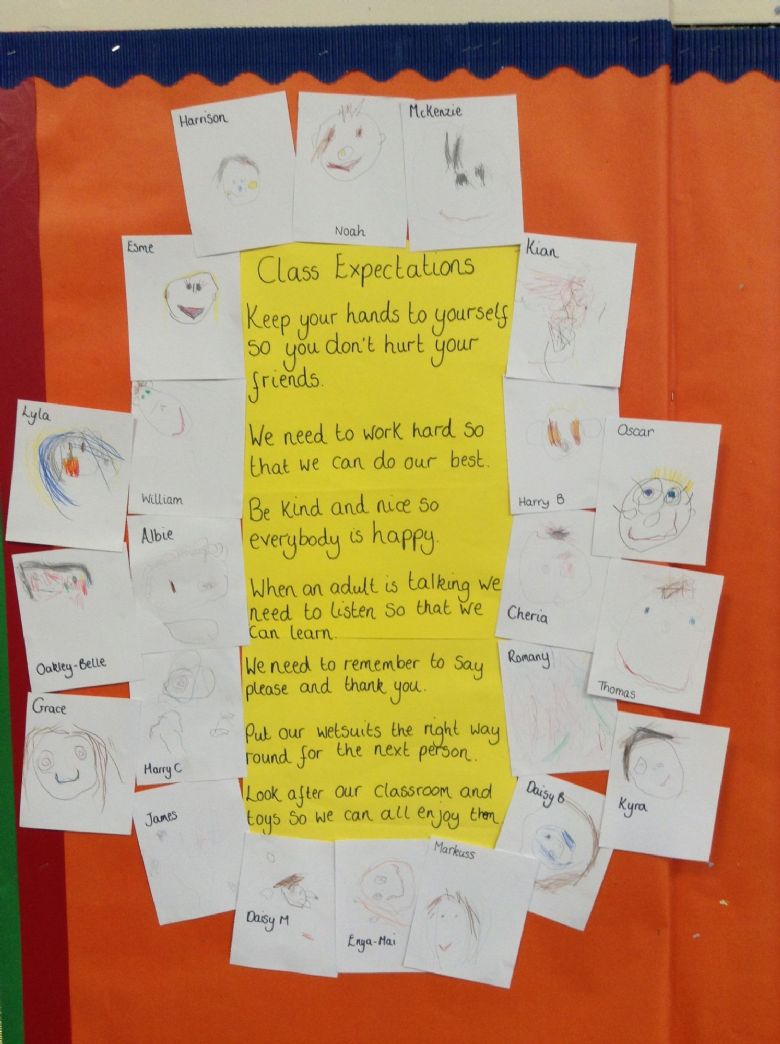 Harrison
Noah
McKenzie
Esme
Kian
Class Expectations
Keep your hands to yourself
so you don't hurt your
friends.
We need to work hard so
that we can do our best.
Be kind and nice so
everybody is happy.
When an adult is talking we
need to listen so that we
can learn.
We need to remember to say
please and thank you.
Put our wetsuits the right way
round for the next person.
Look after our classroom and
toys so we can all enjoy them
Lyla
William
Albie
Oakley-Belle
Grace
Harry C
James
Daisy M
Enya-Mai
Markuss
Daisy B
Kyra
Romany
Thomas
Cheria
Harry B
Oscar